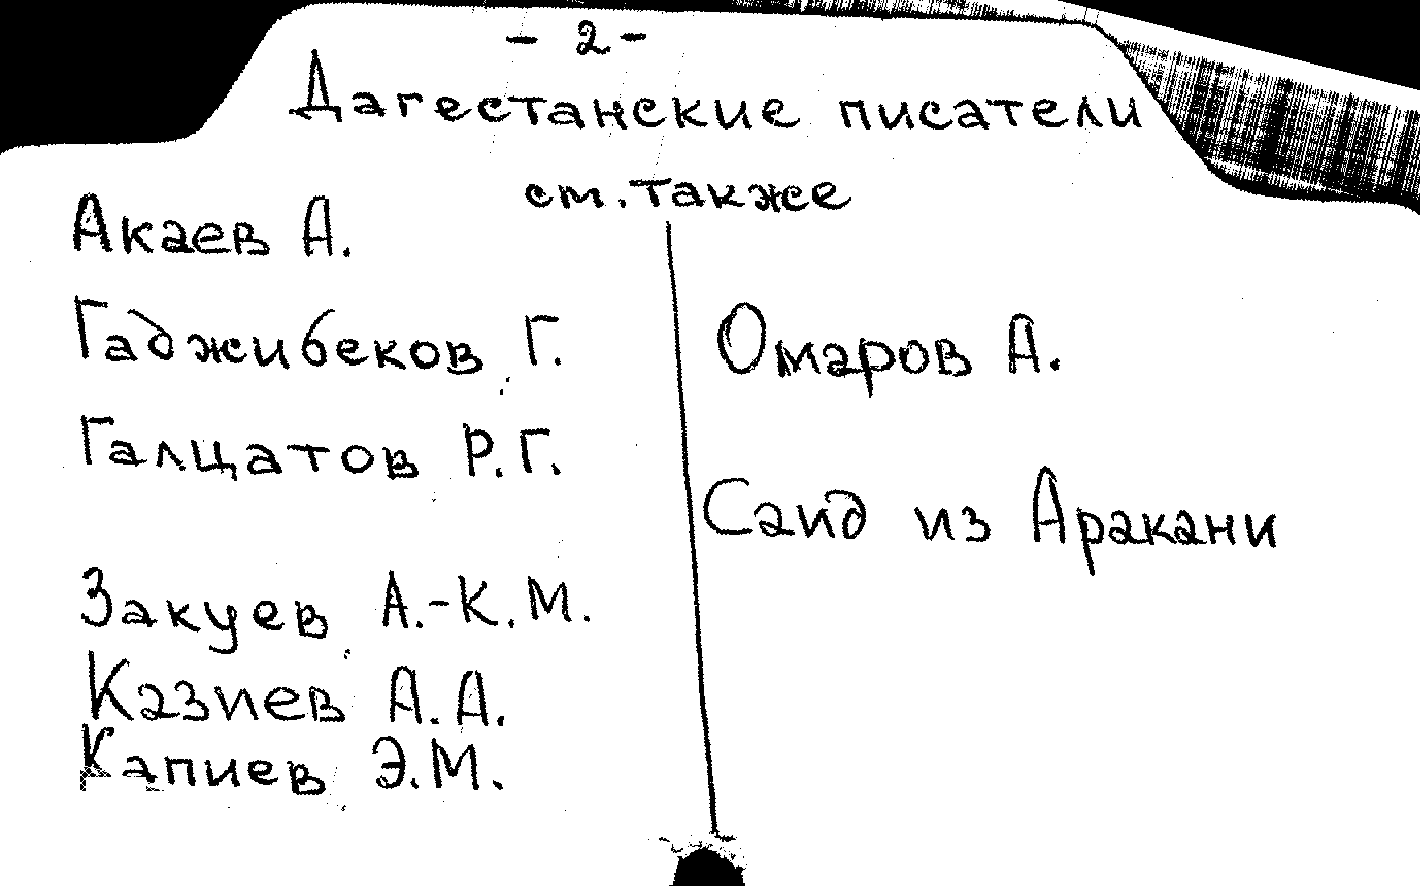 - 2 -
Дагестанские писатели
см. также
Акаев А.
Гаджибеков Г.
Галцатов Р.Г.
Закуев А.-К.М.
Казиев А.А.
Капиев Э.М.
Омаров А.
Саид из Аракани